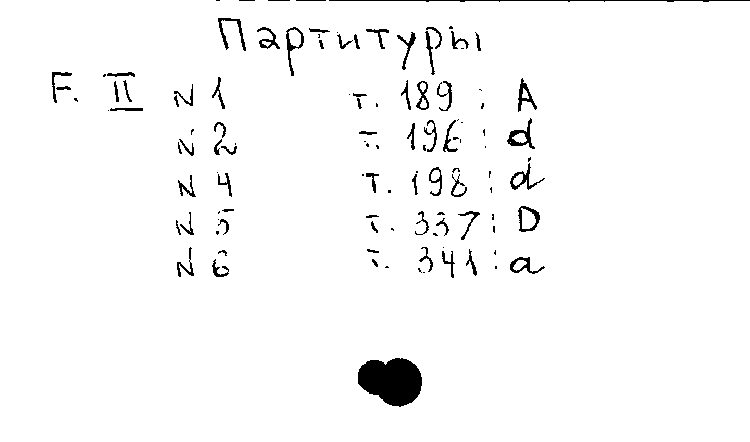 Партитуры
F. II N 1 т. 189 : A
N 2 т. 196 : d
N 4 т. 198 : d
N 5 т. 337 : D
N 6 т. 341 : a